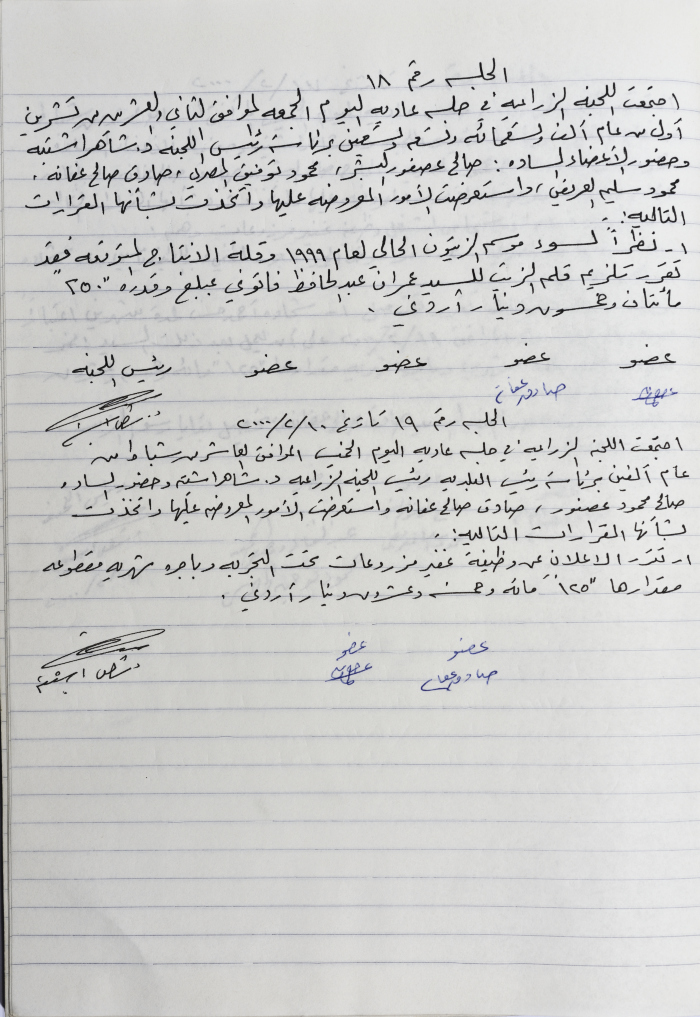 الجلسه رقم ١٨
اجتمعت اللجنه الزراعيه في جلسه عاديه اليوم الجمعه الموافق الثاني والعشرين من تشرين
أول من عام ألف وتسعمائه وتسعه وتسعين برئاسة رئيس اللجنه د. شاهر اشتيه
وحضور الأعضاء الساده : صالح عصفور ، محمود توفيق المصري ، صادق صالح عفانه ،
محمود سليم العريض ، واستعرضت الأمور المعروضه عليها واتخذت بشأنها القرارات
التاليه :.
١- نظراً لسوء موسم الزيتون الحالي لعام ١٩٩٩ وقلة الانتاج المتوقعه فقد
تقرر تلزيم قلم الزيت للسيد عمران عبد الحافظ قانوني بمبلغ وقدره "٢٥٠"
مائتان وخمسون دينار أردني .
عضو عضو عضو عضو رئيس اللجنه
صادق عفانه
الجلسه رقم ١٩ تاريخ ٢٠٠٠/٢/١٠
اجتمعت اللجنه الزراعيه في جلسه عاديه اليوم الخميس الموافق العاشر من شباط من
عام ألفين برئاسة رئيس البلديه رئيس اللجنه الزراعيه د. شاهر اشتيه وحضور الساده
صالح محمود عصفور ، صادق صالح عفانه واستعرضت الأمور المعروضه عليها واتخذت
بشأنها القرارات التاليه :.
١- تقرر الاعلان عن وظيفة غفير مزروعات تحت التجربه وباجره شهريه مقطوعه
مقدارها "١٢٥" مائه وخمسه وعشرون دينار أردني .
عضو عضو
صادق عفانه